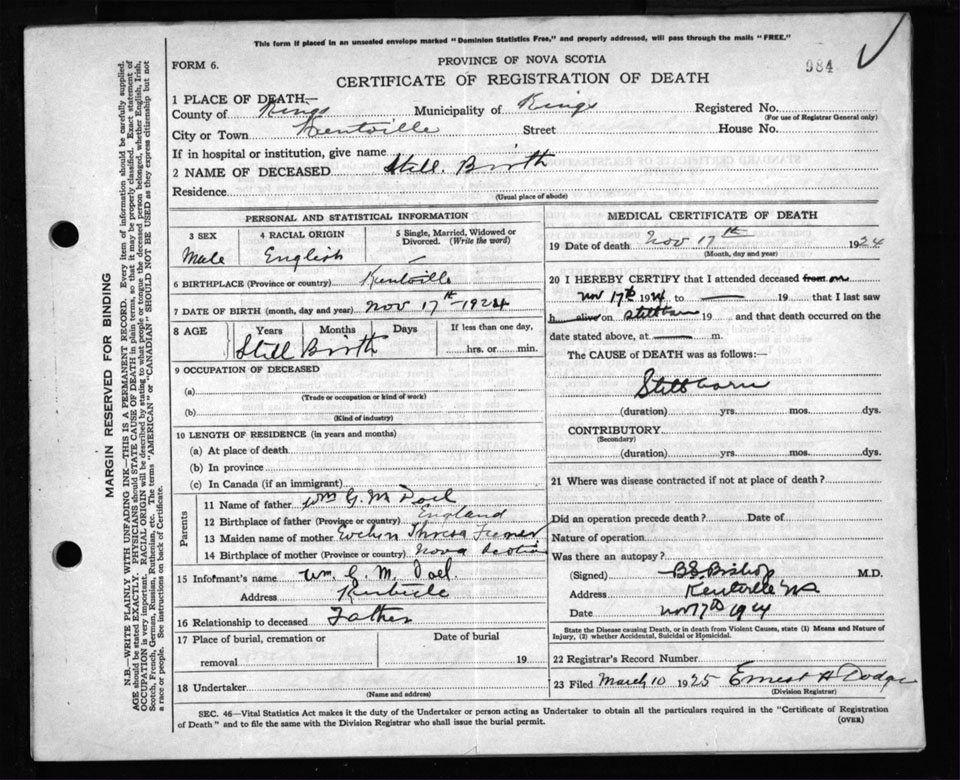 This form if placed in an unsealed envelope marked "Dominion Statistics Free," and properly addressed, will pass through the mails "FREE."
984
FORM 6.
PROVINCE OF NOVA SCOTIA
CERTIFICATE OF REGISTRATION OF DEATH
1 PLACE OF DEATH—
County of Kings Municipality of Kings Registered No.
(For use of Registrar General only)
City or Town Kentville Street House No.
If in hospital or institution, give name
2 NAME OF DECEASED Still. Birth
Residence
(Usual place of abode)
PERSONAL AND STATISTICAL INFORMATION
3 SEX 4 RACIAL ORIGIN 5 Single, Married, Widowed or Divorced. (Write the word)
Male English
6 BIRTHPLACE (Province or country) Kentville
7 DATE OF BIRTH (month, day and year) Nov 17th-1924
8 AGE Years Months Days If less than one day,
Still Birth hrs. or min.
9 OCCUPATION OF DECEASED
(a)
(Trade or occupation or kind of work)
(b)
(Kind of industry)
10 LENGTH OF RESIDENCE (in years and months)
(a) At place of death
(b) In province
(c) In Canada (if an immigrant)
Parents
11 Name of father Wm G. M. Doel
12 Birthplace of father (Province or country) England
13 Maiden name of mother Evelyn
14 Birthplace of mother (Province or country) Nova Scotia
15 Informant's name Wm. G. M. Doel.
Address Kentville
16 Relationship to deceased Father
17 Place of burial, cremation or Date of burial
removal 19
18 Undertaker
(Name and address)
MEDICAL CERTIFICATE OF DEATH
19 Date of death Nov 17th 1924
(Month, day and year)
20 I HEREBY CERTIFY that I attended deceased from on
Nov 17th 1924 to — 19 that I last saw
h alive on Stillborn 19 and that death occurred on the
date stated above, at — m.
The CAUSE OF DEATH was as follows:—
Stillborn
(duration) yrs. mos. dys.
CONTRIBUTORY
(Secondary)
(duration) yrs. mos. dys.
21 Where was disease contracted if not at place of death?
Did an operation precede death? Date of
Nature of operation
Was there an autopsy?
(Signed) B.S. Bishop M.D.
Address Kentville NS
Date Nov 17th 1924
State the Disease causing Death, or in death from Violent Causes, state (1) Means and Nature of
Injury, (2) whether Accidental, Suicidal or Homicidal.
22 Registrar's Record Number
23 Filed March 10 1925 Ernest H Dodge
(Division Registrar)
SEC. 46—Vital Statistics Act makes it the duty of the Undertaker or person acting as Undertaker to obtain all the particulars required in the "Certificate of Registration
of Death" and to file the same with the Division Registrar who shall issue the burial permit.
(OVER)
MARGIN RESERVED FOR BINDING
N.B.—WRITE PLAINLY WITH UNFADING INK—THIS IS A PERMANENT RECORD. Every item of information should be carefully supplied.
AGE should be stated EXACTLY. PHYSICIANS should STATE CAUSE OF DEATH in plain terms, so that it may be properly classified. Exact statement of
OCCUPATION is very important. RACIAL ORIGIN will be described by stating to what people or tongue the deceased person belonged, whether English, Irish,
Scotch, French, German, Russian, Ruthenian, etc. The terms "AMERICAN" or "CANADIAN" SHOULD NOT BE USED as they express citizenship but not
a race or people. See instructions on back of Certificate.